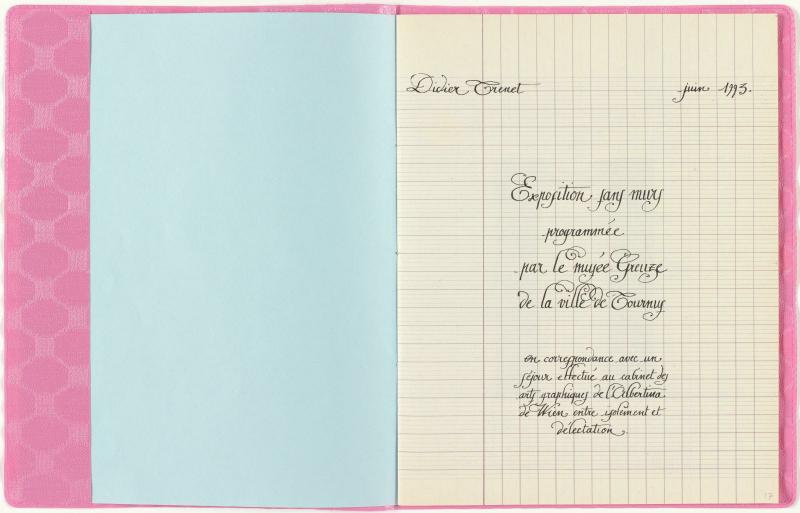 Didier Trenet juin 1993.
Exposition sans murs
programmée
par le musée Greuze
de la ville de Tournus
en correspondance avec un
séjour effectué au cabinet des
arts graphiques de l'Albertina
de Wien entre isolement et
délectation.
17